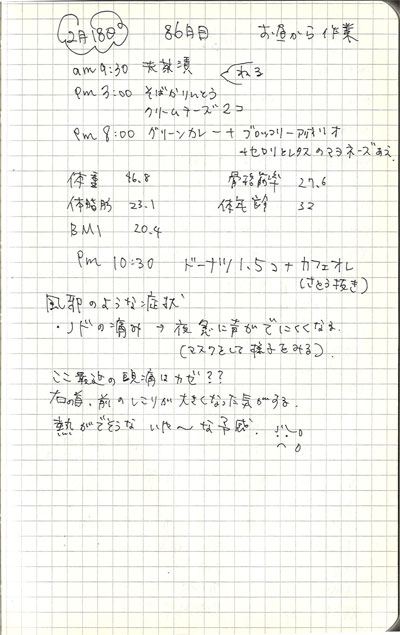 2月18日 86日目 お昼から作業
am 9:30 お茶漬 ねる
pm 3:00 そばかりんとう
クリームチーズ2コ
pm 8:00 グリーンカレー + ブロッコリー
+セロリとレタスのマヨネーズあえ
体重 46.8 骨格筋率 27.6
体脂肪 23.1 体年齢 32
BMI 20.4
pm 10:30 ドーナツ1.5コ + カフェオレ
(さとう抜き)
風邪のような症状
・ノドの痛み → 夜急に声がでにくくなる.
(マスクをして様子をみる)
ここ最近の頭痛はカゼ??
右の首、前のしこりが大きくなった気がする.
熱がでそうな いや〜な予感.